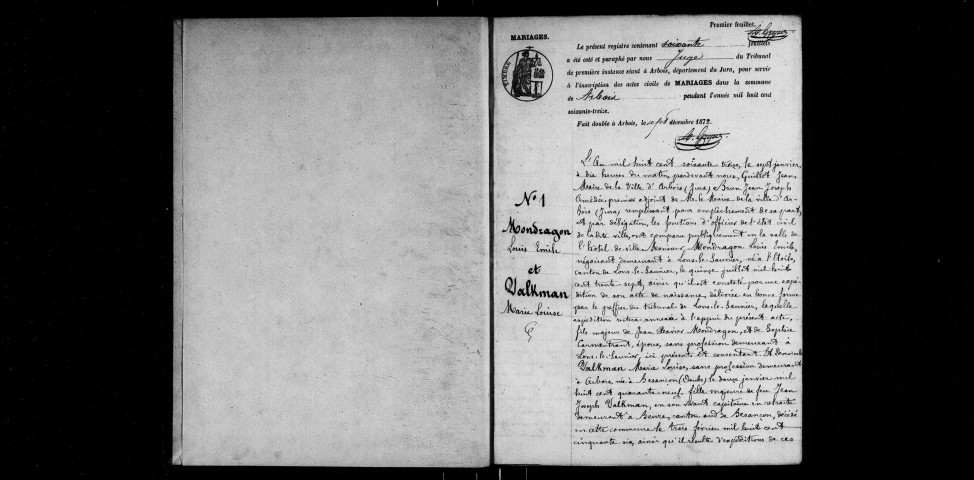 Premier feuillet.
MARIAGES.
Le présent registre contenant soixante feuillets
a été coté et paraphé par nous Juge du Tribunal
de première instance séant à Arbois, département du Jura, pour servir
à l'inscription des actes civils de MARIAGES dans la commune
de Arbois pendant l'année mil huit cent
soixante-treize.
Fait double à Arbois, le décembre 1872.
TIMBRE
N° 1
Mondragon
Louis Emile
et
Valkman
Marie Louise
L'An mil huit cent soixante treize, le sept janvier,
à dix heures du matin, pardevant nous, Guillot Jean
Maire de la Ville d'Arbois (Jura) Brun Jean Joseph
Amédée premier adjoint de Mr le Maire de la ville d'Ar-
bois (Jura) remplissant pour empêchement de sa part,
et par délégation, les fonctions d'officier de l'état civil
de ladite ville, ont comparu publiquement en la salle de
l'hôtel de ville Monsieur, Mondragon Louis Emile,
négociant demeurant à Lons-le-Saunier, né à l'Etoile,
canton de Lons-le-Saunier, le quinze juillet mil huit
cent trente sept, ainsi qu'il est constaté par une expé-
dition de son acte de naissance, délivrée en bonne forme
par le greffier du tribunal de Lons-le-Saunier, laquelle
expédition restera annexée à l'appui du présent acte,
fils majeur de Jean Xavier Mondragon, et de Sophie
Carmentrant, époux, sans profession demeurant à
Lons-le-Saunier, ici présents et consentant. Et Demoiselle
Valkman Marie Louise, sans profession demeurant
à Arbois, née à Besançon (Doubs) le douze janvier mil
huit cent quarante neuf, fille majeure de feu Jean
Joseph Valkman, en son vivant capitaine en retraite
demeurant à Beure, canton sud de Besançon, décédé
en cette commune le trois février mil huit cent
cinquante six, ainsi qu'il résulte d'expéditions de ces